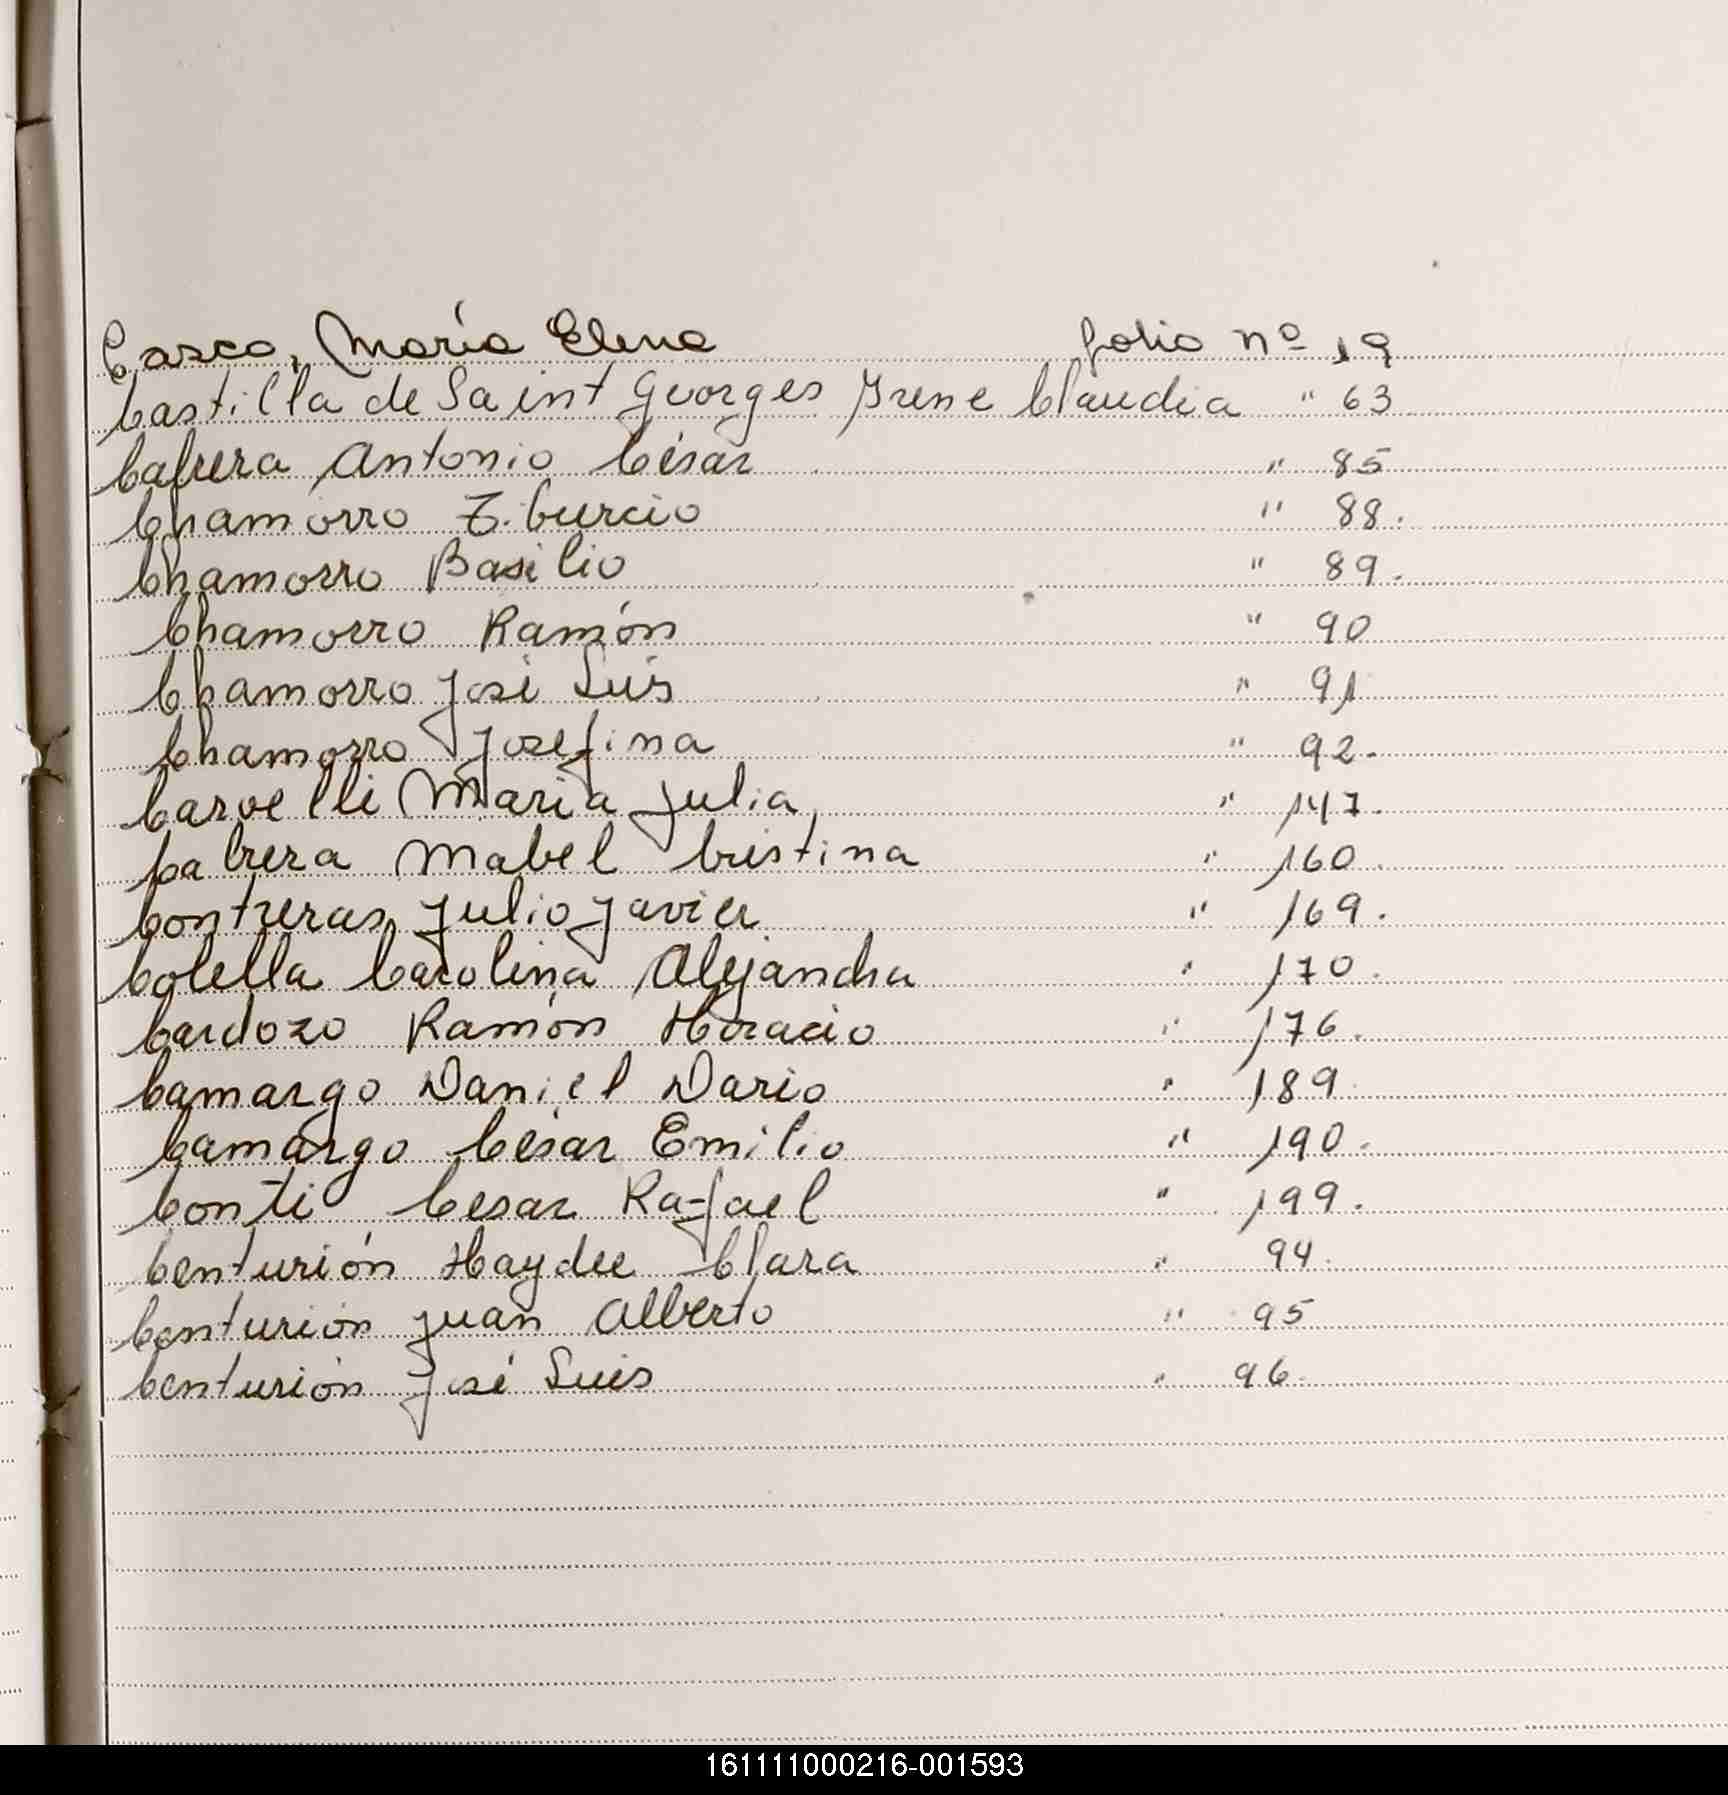 Casco, María Elena folio nº 19
Castilla de Saint Georges Irene Claudia " 63
Cabrera Antonio César " 85
Chamorro Tiburcio " 88.
Chamorro Basilio " 89.
Chamorro Ramón " 90
Chamorro José Luis " 91
Chamorro Josefina " 92.
Carvelli Maria Julia " 147.
Cabrera Mabel Cristina " 160.
Contreras Julio Javier " 169.
Colella Carolina Alejandra " 170.
Cardozo Ramón Horacio " 176.
Camargo Daniel Dario " 189.
Camargo César Emilio " 190.
Conti Cesar Rafael " 199.
Centurión Haydee Clara " 94.
Centurión Juan Alberto " 95
Centurión José Luis " 96.
161111000216-001593